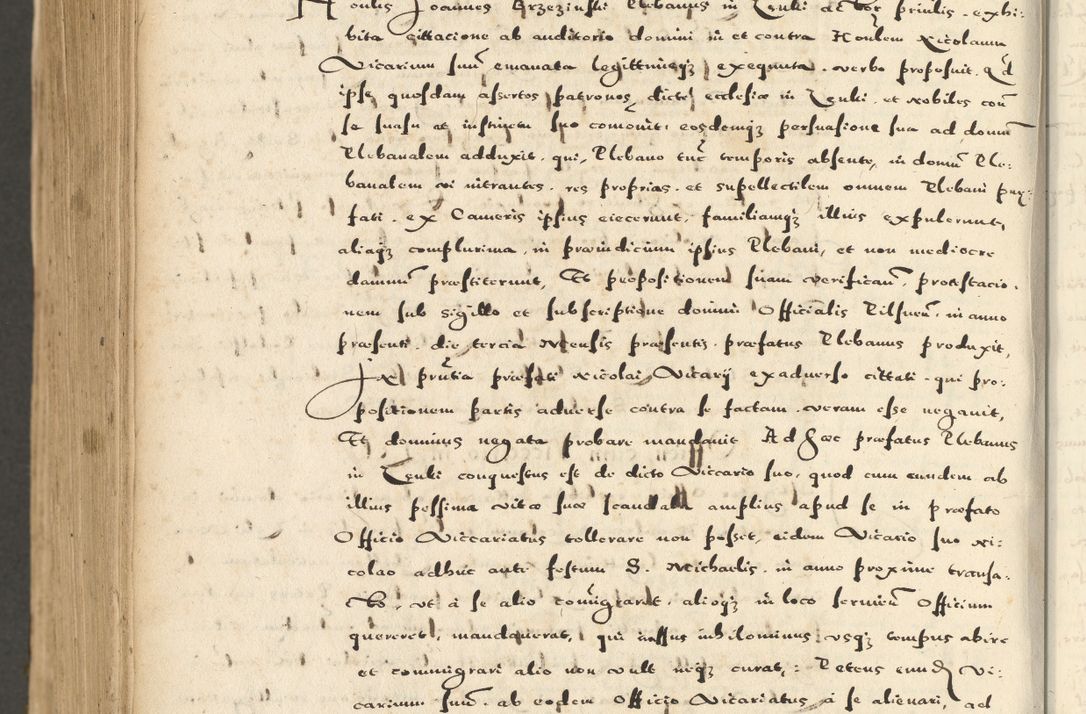 Joannes Brzezinski Plebanus in Zeuki exhi:
bita cittacione ab auditorio domini in et contra Honlem Nicolaum
Vicarium suũ emanata legittimeqz exequuta. verbo proposuit. Qđ
ipse quosdam assertos patronos dicte ecclesiæ in Zeuki. et nobiles coũ
se suasu at instinctu suo comõuit, eosdemqz persuasione sua ad domũ
Plebanalem adduxit. qui, Plebano tũc temporis absente, in domũ Ple:
banalem vi intrantes. res proprias. et supellectilem omnem Plebani præ:
fati. ex Cameris ipsius eiecerunt, familiamqz illius expulerunt,
aliaqz complurima, in præiudicium ipsius Plebani, et non mediocre
damnũ præstiterunt, Et propositionem suam verificañ, protestacio.
nem sub sigillo et subscriptione domini Officialis Pilsneñ. in anno
præsenti. die tercia Mensis præsentis. præfatus Plebanus produxit,
In prñtia præfati Nicolai Vicarij exaduerso cittati. qui pro:
positionem partis aduerse contra se factam. veram esse negauit,
Et dominus negata probare mandauit Ad hæc præfatus Plebanus
in Zeuki conquestus est de dicto Viccario suo, quod cum eundem ab
illius pessima vitæ suæ scandala amplius apud se in præfato
Officio Viccariatus tollerare non posset, eidem Vicario suo Ni:
colao adhuc ante festum S. Michaelis. in anno proxime transa:
cto, vt à se alio comigraret, alioqz in loco seruicii Officium
quereret, mandauerat, qui iussus nihilominus vsqz tempus abire
et commigrari alio non vult neqz curat,: Petens eund Vi:
carium suũ. ab eodem Officio Vicariatus à se alienari, ad